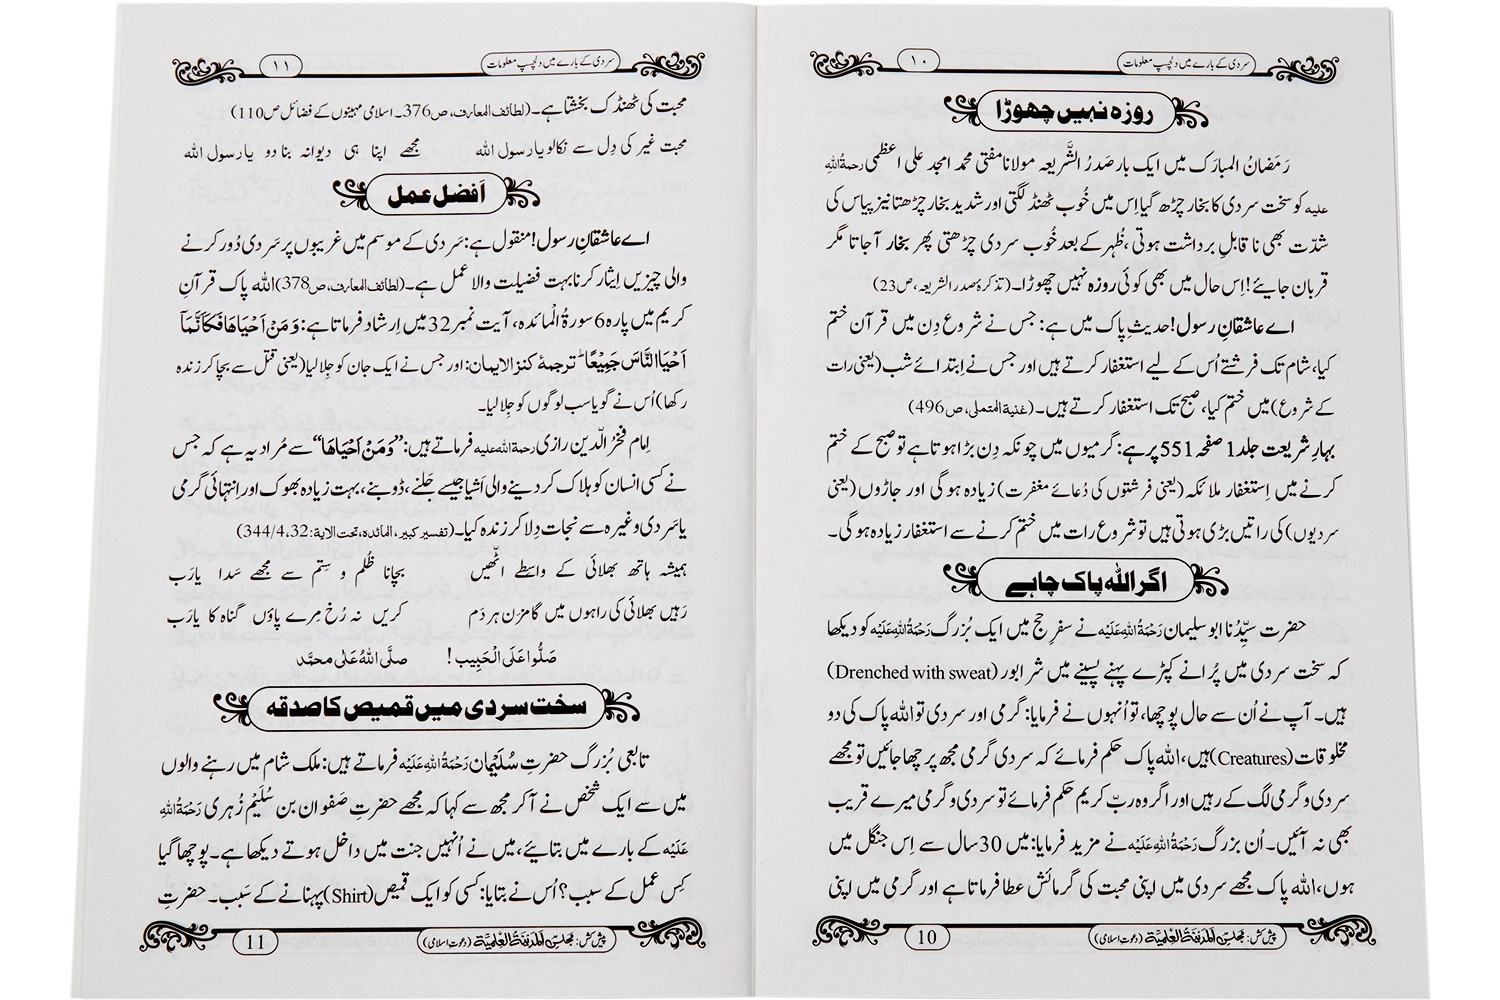 سردی کے بارے میں دلچسپ معلومات
۱۰
روزہ نہیں چھوڑا
رَمَضانُ المبارَک میں ایک بار صَدرُ الشَّریعہ مولانا مفتی محمد امجد علی اعظمی رحمۃُ اللہِ
علیہ کو سخت سردی کا بخار چڑھ گیا اِس میں خُوب ٹھنڈ لگتی اور شدید بخار چڑھتا نیز پیاس کی
شدّت بھی نا قابلِ برداشت ہوتی، ظُہر کے بعد خُوب سردی چڑھتی پھر بخار آجاتا مگر
قربان جایئے! اِس حال میں بھی کوئی روزہ نہیں چھوڑا۔ (تذکرۂ صدر الشریعہ، ص23)
اے عاشقانِ رسول! حدیثِ پاک میں ہے: جس نے شروع دِن میں قرآن ختم
کیا، شام تک فرشتے اُس کے لیے استغفار کرتے ہیں اور جس نے اِبتدائے شب (یعنی رات
کے شروع) میں ختم کیا، صبح تک استغفار کرتے ہیں۔ (غنیۃ المتملی، ص496)
بہارِ شریعت جلد1 صفحہ 551 پر ہے: گرمیوں میں چونکہ دِن بڑا ہوتا ہے تو صبح کے ختم
کرنے میں اِستغفارِ ملائکہ (یعنی فرشتوں کی دُعائے مغفرت) زیادہ ہوگی اور جاڑوں (یعنی
سردیوں) کی راتیں بڑی ہوتی ہیں تو شروع رات میں ختم کرنے سے استغفار زیادہ ہوگی۔
اگر اللہ پاک چاہے
حضرت سیِّدُنا ابو سلیمان رَحْمَۃُ اللہِ عَلَیْہ نے سفرِ حج میں ایک بُزرگ رَحْمَۃُ اللہِ عَلَیْہ کو دیکھا
کہ سخت سردی میں پُرانے کپڑے پہنے پسینے میں شرابور (Drenched with sweat)
ہیں۔ آپ نے اُن سے حال پوچھا، تو اُنہوں نے فرمایا: گرمی اور سردی تو اللہ پاک کی دو
مخلوقات (Creatures) ہیں، اللہ پاک حکم فرمائے کہ سردی گرمی مجھ پر چھا جائیں تو مجھے
سردی و گرمی لگ کے رہیں اور اگر وہ ربِّ کریم حکم فرمائے تو سردی و گرمی میرے قریب
بھی نہ آئیں۔ اُن بزرگ رَحْمَۃُ اللہِ عَلَیْہ نے مزید فرمایا: میں 30 سال سے اِس جنگل میں
ہوں، اللہ پاک مجھے سردی میں اپنی محبت کی گرمائش عطا فرماتا ہے اور گرمی میں اپنی
پیش کش: مجلس اَلْمَدِیْنَۃُ الْعِلْمِیَّۃ (دعوتِ اسلامی)
10
سردی کے بارے میں دلچسپ معلومات
۱۱
محبت کی ٹھنڈک بخشتا ہے۔ (لطائف المعارف، ص376۔ اسلامی مہینوں کے فضائل ص110)
محبت غیر کی دِل سے نکالو یارسول اللہ مجھے اپنا ہی دیوانہ بنا دو یارسول اللہ
اَفضل عمل
اے عاشقانِ رسول! منقول ہے: سَردی کے موسم میں غریبوں پر سَردی دُور کرنے
والی چیزیں اِیثار کرنا بہت فضیلت والا عمل ہے۔ (لطائف المعارف، ص378) اللہ پاک قرآنِ
کریم میں پارہ 6 سورۃُ الْمائدہ، آیت نمبر 32 میں اِرشاد فرماتا ہے: وَمَنْ اَحْیَاهَا فَكَاَنَّمَاۤ
اَحْیَا النَّاسَ جَمِیْعًاؕ ترجمۂ کنز الایمان: اور جس نے ایک جان کو جِلا لیا (یعنی قتل سے بچا کر زندہ
رکھا) اُس نے گویا سب لوگوں کو جِلا لیا۔
اِمام فَخْرُ الدّین رازی رحمۃ اللہ علیہ فرماتے ہیں: ”وَمَنْ اَحْیَاهَا“ سے مُراد یہ ہے کہ جس
نے کسی انسان کو ہلاک کر دینے والی اَشیا جیسے جَلنے، ڈوبنے، بہت زیادہ بھوک اور انتہائی گرمی
یا سَردی وغیرہ سے نجات دِلا کر زندہ کیا۔ (تفسیر کبیر، المائدہ، تحت الایۃ: 32، 4/344)
ہمیشہ ہاتھ بھلائی کے واسطے اٹھیں بچانا ظُلم و سِتم سے مجھے سَدا یارَب
رہیں بھلائی کی راہوں میں گامزن ہر دَم کریں نہ رُخ مِرے پاؤں گناہ کا یارَب
صَلُّوا عَلَی الْحَبِیب! صلَّی اللہُ عَلٰی محمَّد
سخت سردی میں قمیص کا صدقہ
تابعی بُزرگ حضرتِ سُلَیْمان رَحْمَۃُ اللہِ عَلَیْہ فرماتے ہیں: ملک شام میں رہنے والوں
میں سے ایک شخص نے آکر مجھ سے کہا کہ مجھے حضرتِ صَفوان بن سُلَیْم زُہری رَحْمَۃُ اللہِ
عَلَیْہ کے بارے میں بتایئے، میں نے اُنہیں جنت میں داخل ہوتے دیکھا ہے۔ پوچھا گیا
کِس عمل کے سبب؟ اُس نے بتایا: کسی کو ایک قمیص (Shirt) پہنانے کے سَبب۔ حضرتِ
پیش کش: مجلس اَلْمَدِیْنَۃُ الْعِلْمِیَّۃ (دعوتِ اسلامی)
11